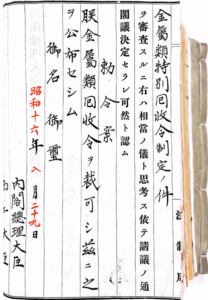 金屬類特別回收令制定ノ件
ヲ審査スルニ右ハ相當ノ儀ト思考ス依テ請議ノ通
閣議決定セラレ可然ト認ム
勅令案
朕金屬類回收令ヲ裁可シ茲ニ之
ヲ公布セシム
御名御璽
昭和十六年八月二十九日
內閣總理大臣